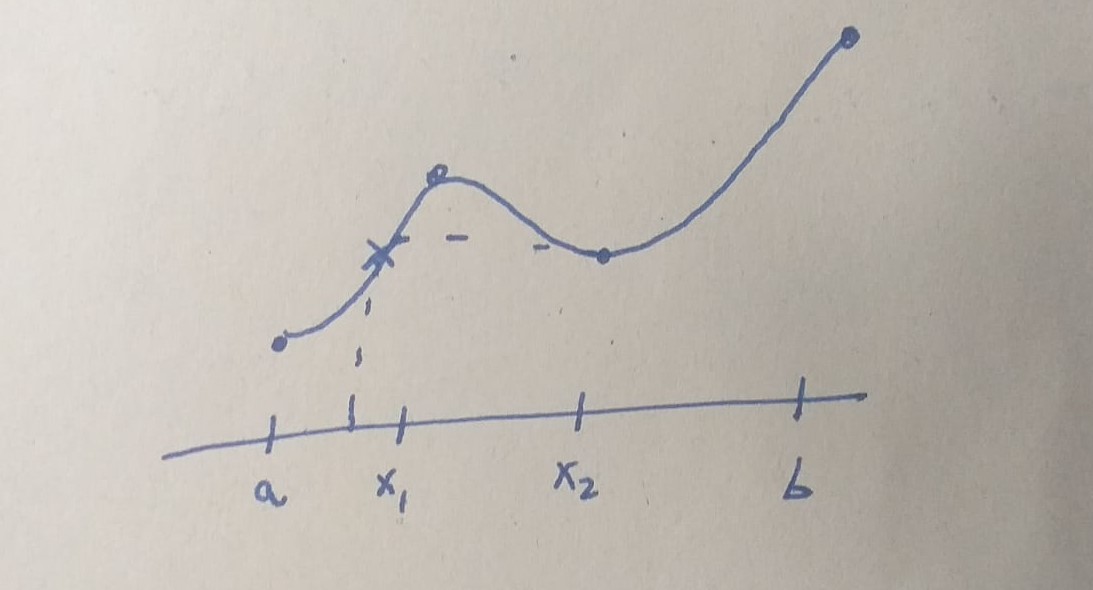 a x₁ x₂ b